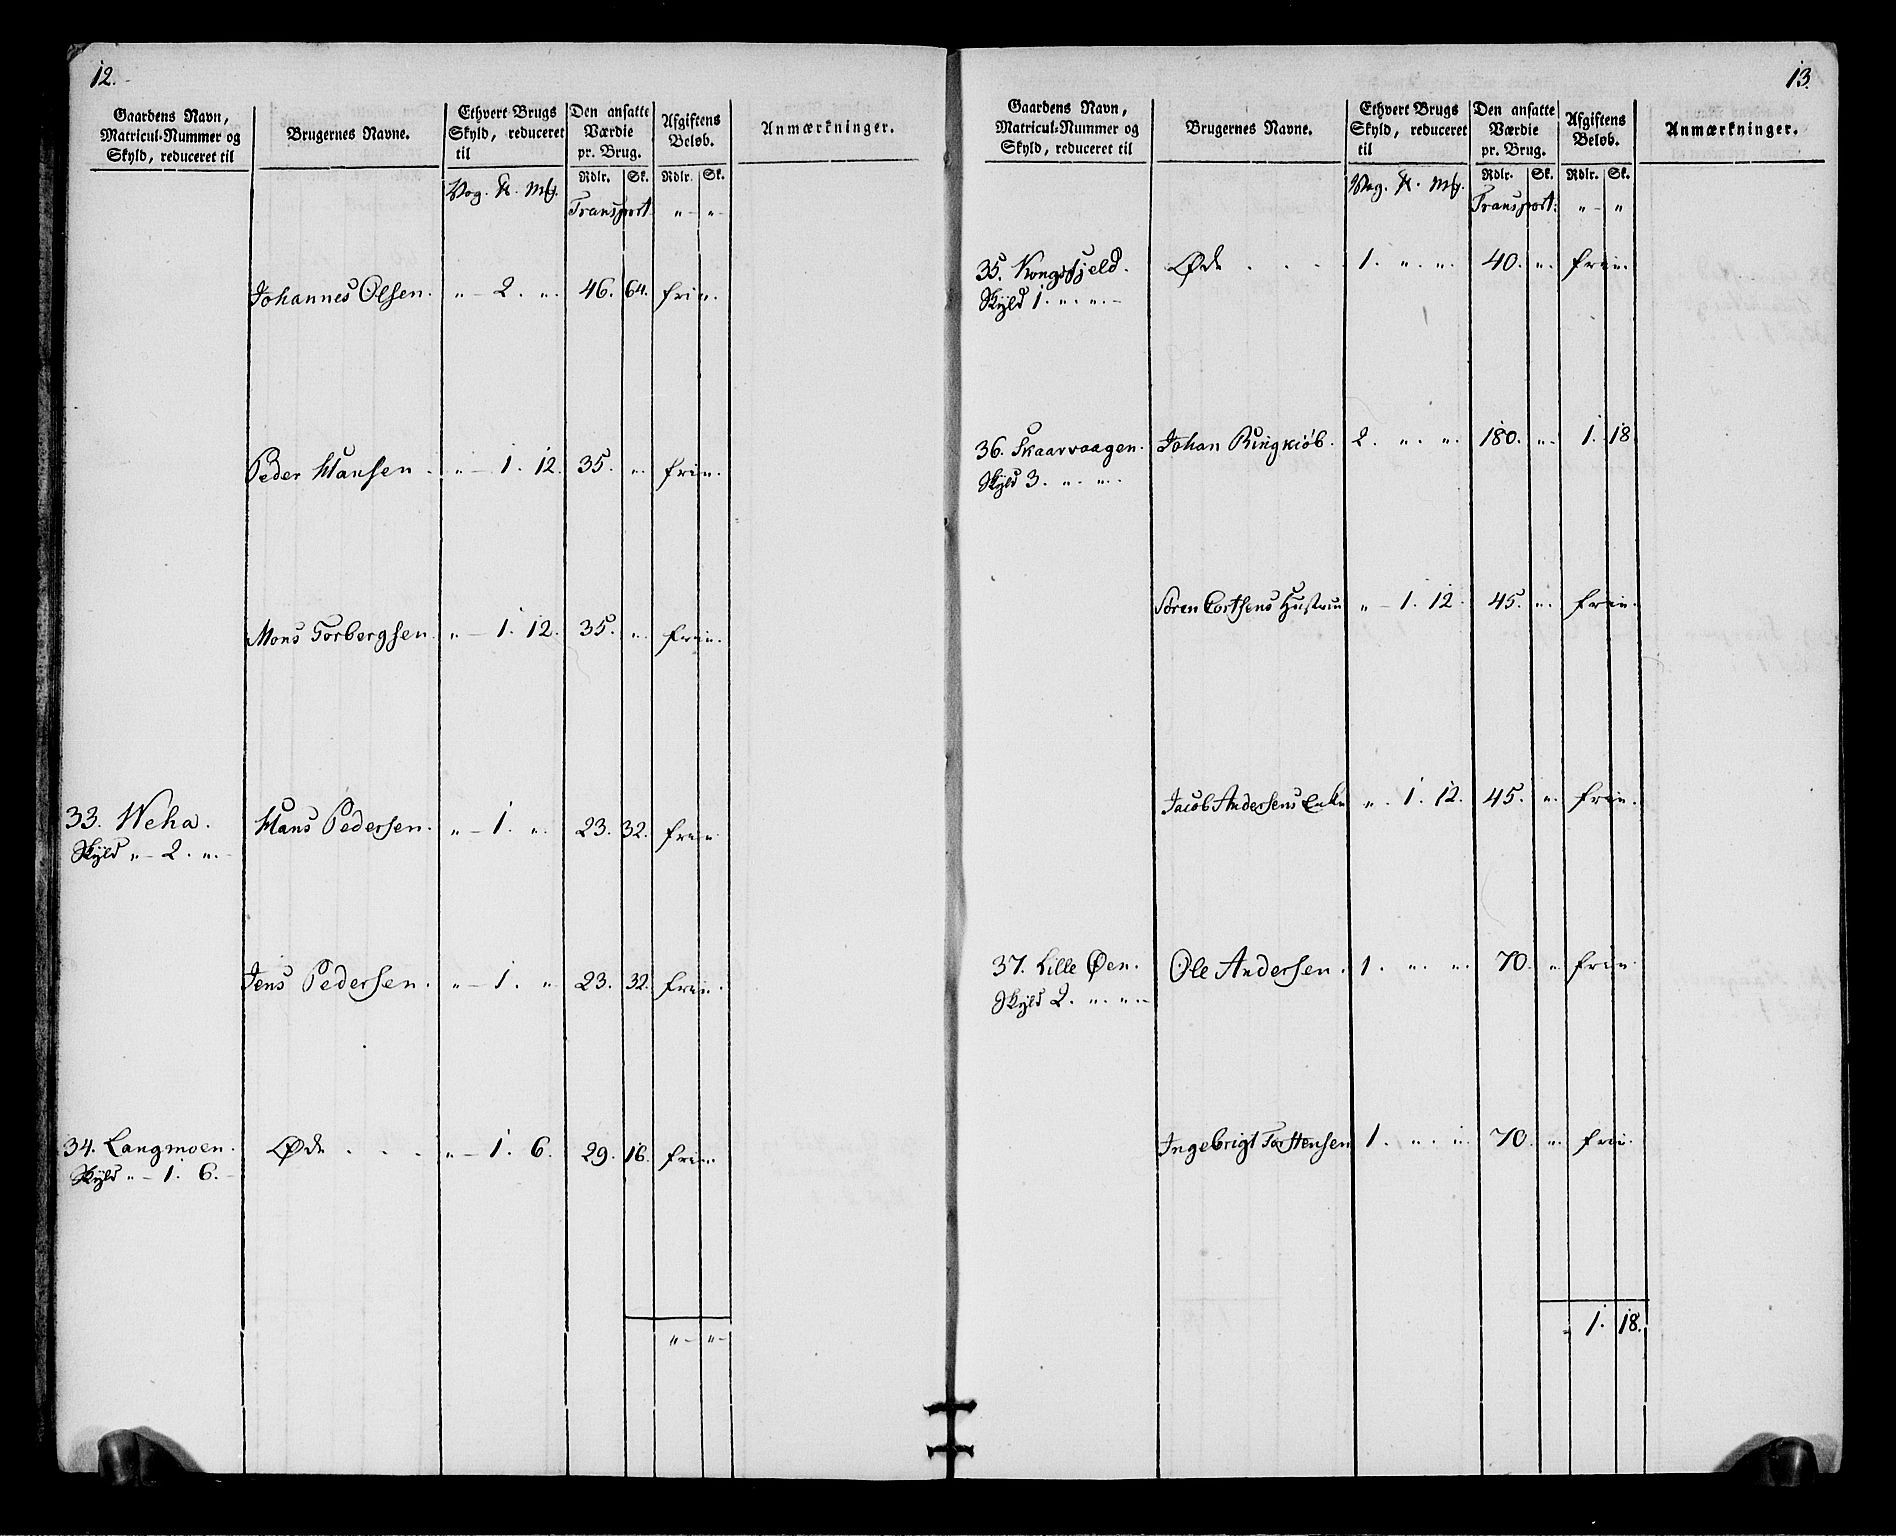 12.
Gaardens Navn, Matricul-Nummer og Skyld, reduceret til | Brugernes Navne. | Ethvert Brugs Skyld, reduceret til | Den ansatte Værdie pr. Brug. | Afgiftens Beløb. | Anmærkninger.
Vog. ℔. Mk. | Rdlr. | Sk. | Rdlr. | Sk.
Transport. " - " -
Johannes Olsen. " - 2. ". 46. 64. frie.
Peder Hansen. " - 1. 12. 35. ". frie.
Mons Torbergsen. " - 1. 12. 35. ". frie.
33. Weha. Hans Pedersen. " - 1. ". 23. 32. frie
Skyld " - 2. ". -
Jens Pedersen. " - 1. " 23. 32. frie.
34. Langmoen. Øde . . . " - 1. 6. 29. 16. frie.
Skyld " - 1. 6. -
" - " -
13.
Gaardens Navn, Matricul-Nummer og Skyld, reduceret til | Brugernes Navne. | Ethvert Brugs Skyld, reduceret til | Den ansatte Værdie pr. Brug. | Afgiftens Beløb. | Anmærkninger.
Vog. ℔. Mk. | Rdlr. | Sk. | Rdlr. | Sk.
Transport: " - "
35. Kongsfjeld. Øde . . . 1. ". ". 40. ". frie.
Skyld 1. ". ". -
36. Skaarvaagen. Johan Ringkiöb. 2. ". ". 180. ". 1. 18
Skyld 3. ". ".
Sören Cortsens Hustrue " - 1. 12. 45. ". frie.
Jacob Andersens Enke ". 1. 12. 45. ". frie.
37. Lille Øen. Ole Andersen. 1. ". ". 70. ". frie
Skyld 2. ". ". -
Ingebrigt Torstensen 1. ". ". 70. ". frie.
1. 18.